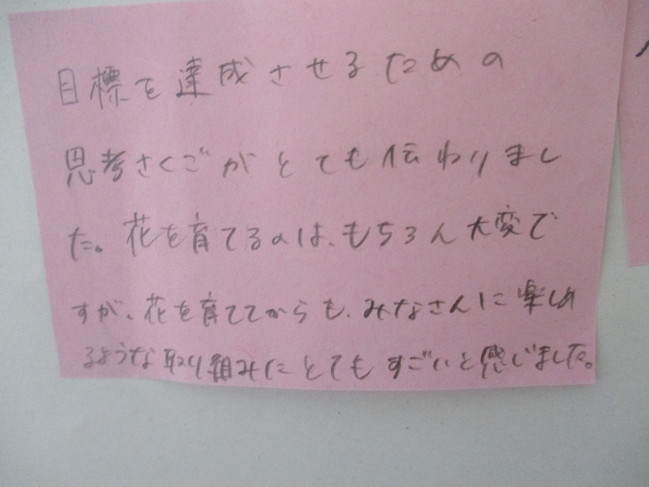 目標を達成させるための
思考さくごがとても伝わりまし
た。花を育てるのは、もちろん大変で
すが、花を育ててからも、みなさんに楽しめ
るような取り組みにとてもすごいと感じました。